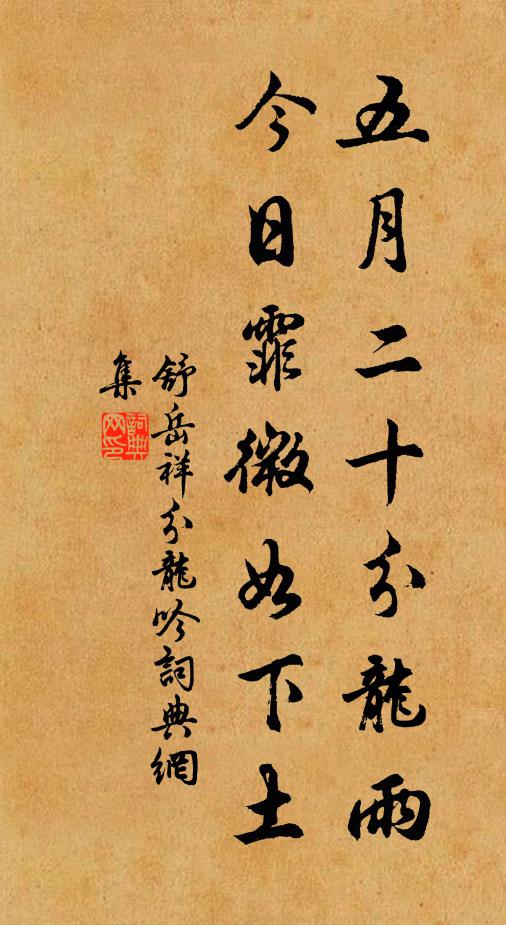 五月二十分龍雨
今日霏微如下土
舒岳祥分龍吟詞典網
集
詞典网印